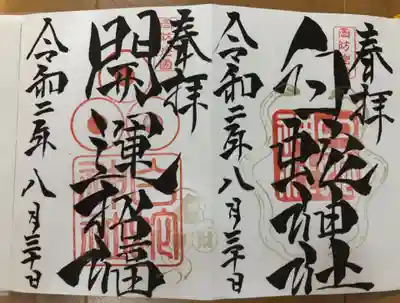 奉拝
白蛇神社
令和二年八月三十日
奉拝
開運招福
令和二年八月三十日